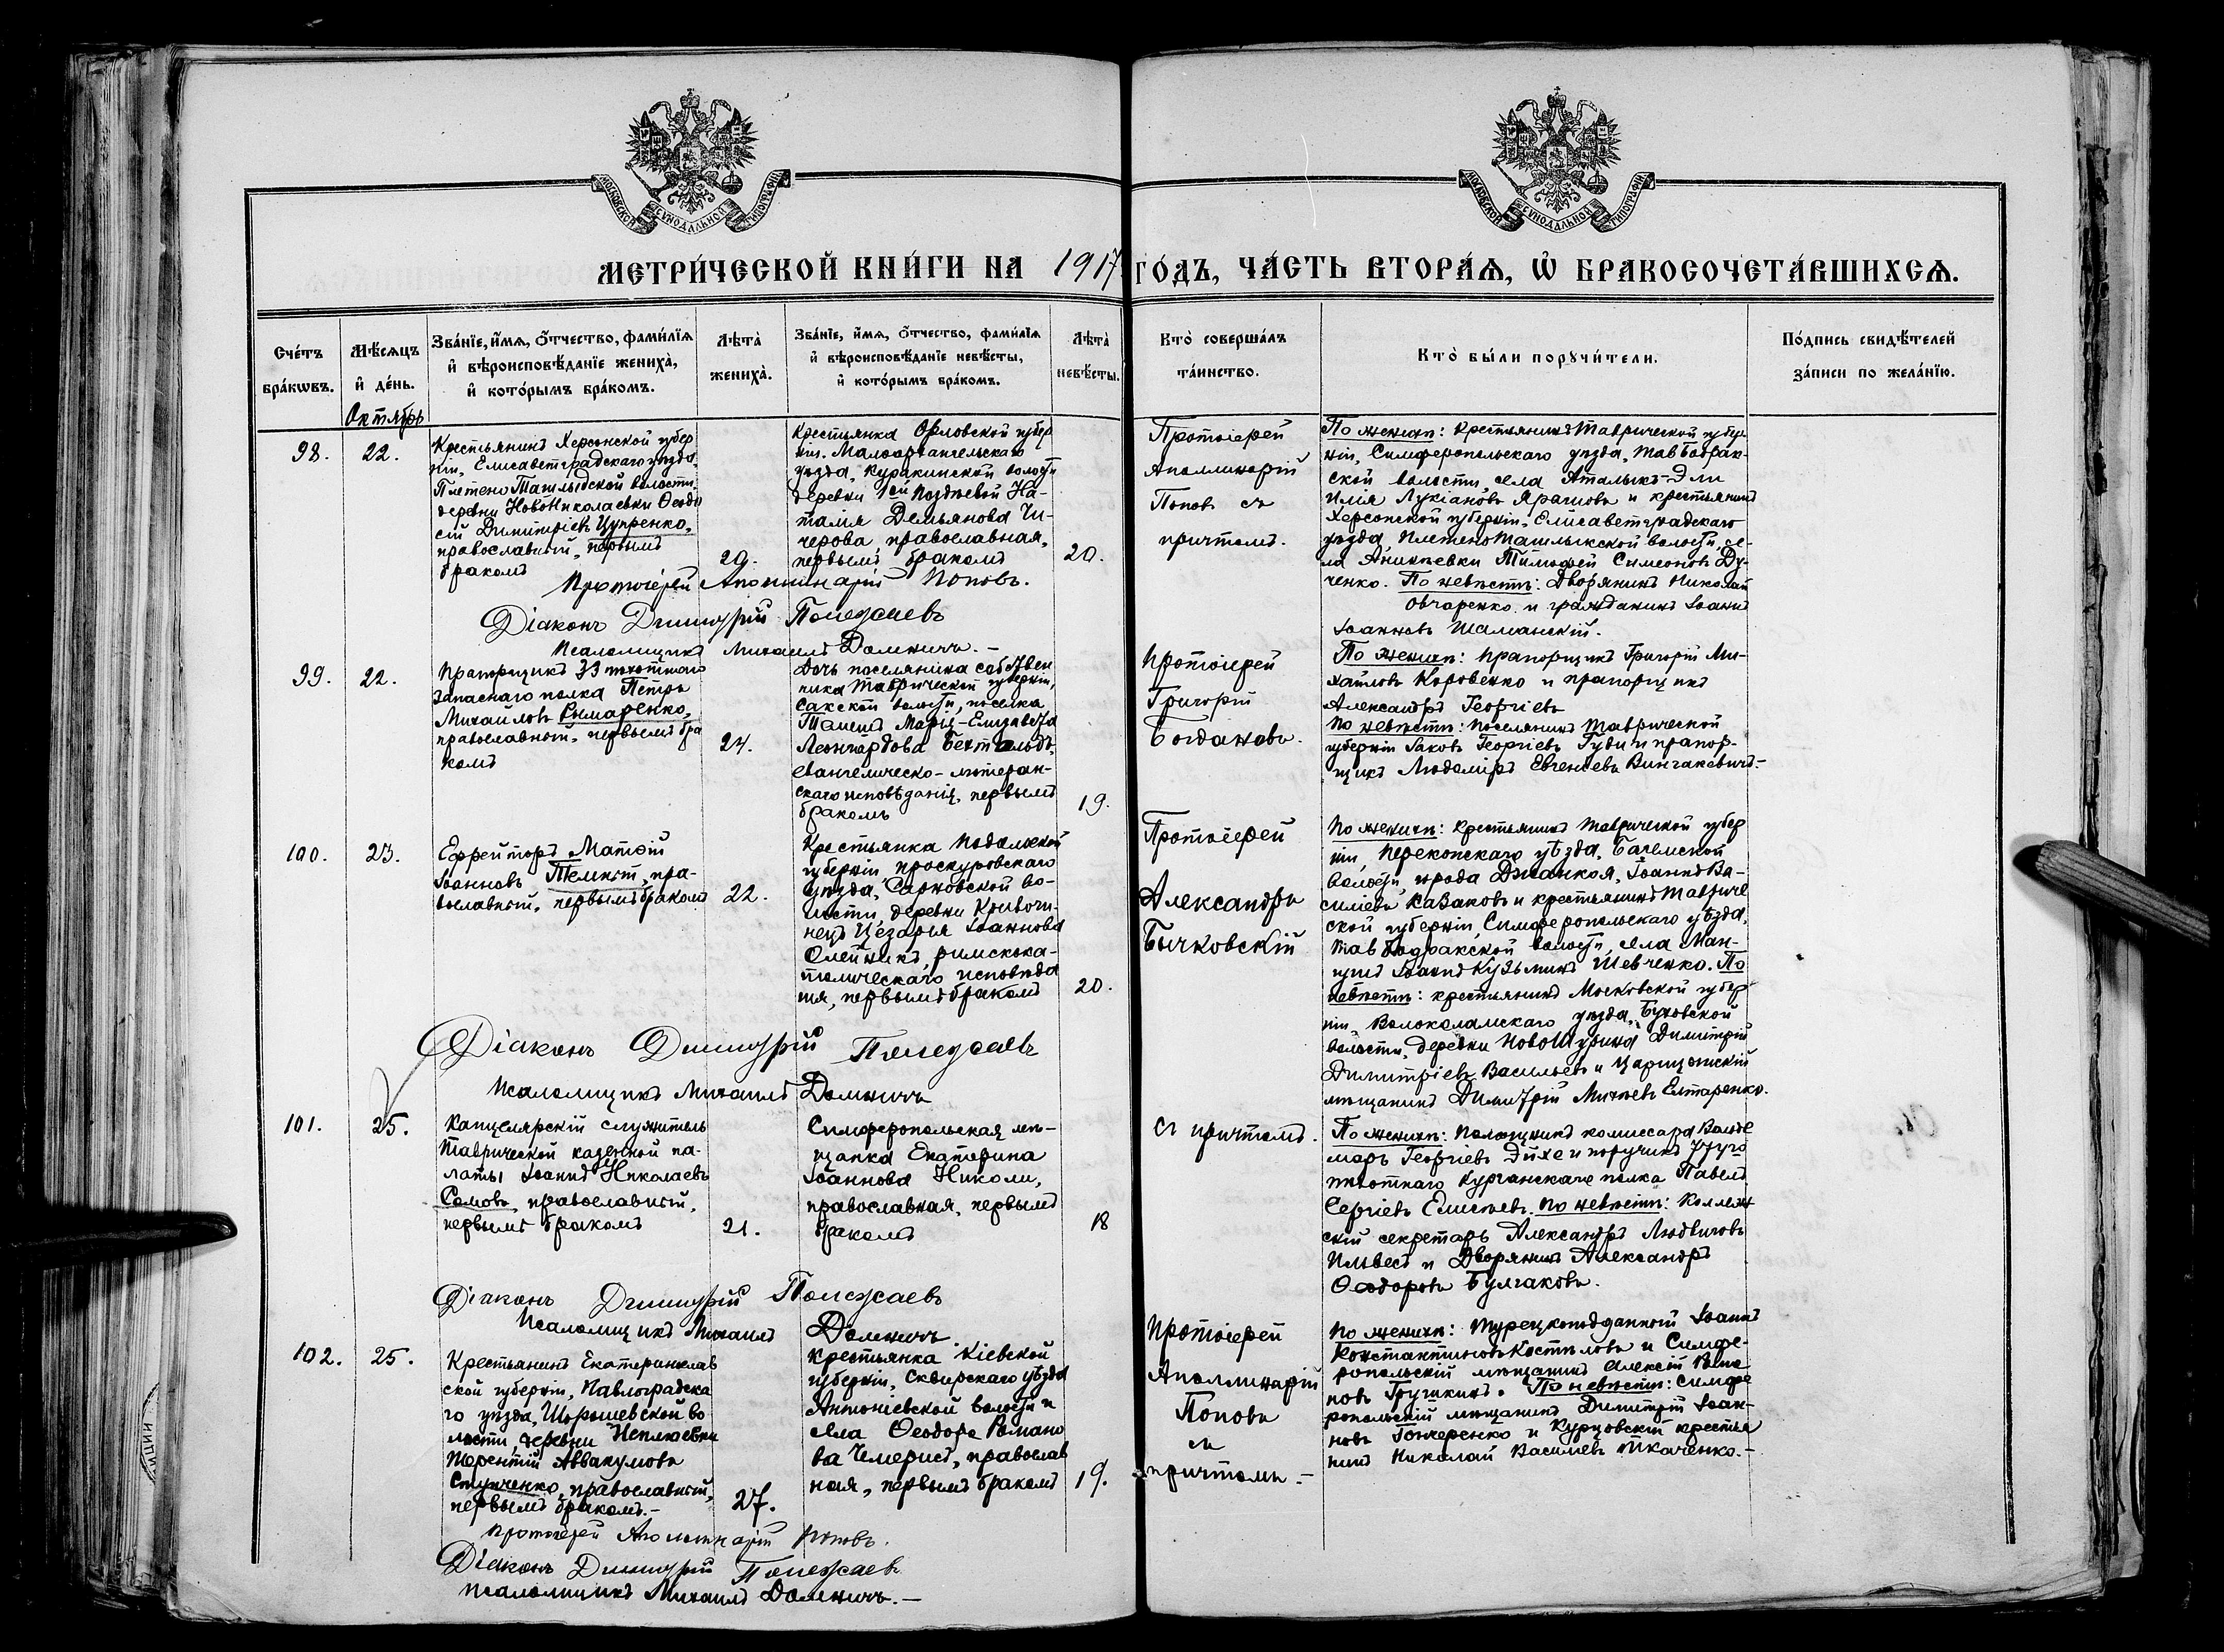 МОСКОВСКОЙ СУНОДАЛЬНОЙ ТИПОГРАФІИ
МОСКОВСКОЙ СУНОДАЛЬНОЙ ТИПОГРАФІИ
МЕТРИ́ЧЕСКОЙ КНИ́ГИ НА 1917 ГО́ДЪ, ЧА́СТЬ ВТОРА́Ѧ, Ѡ БРАКОСОЧЕТА́ВШИХСѦ.
Сче́тъ
бра́кѡвъ.
Мѣ́сѧцъ
и҆ де́нь.
Октябрь
Зва́нїе, и҆́мѧ, ѻ҆́тчество, фами́лїѧ
и҆ вѣроисповѣ́данїе жениха̀,
и҆ кото́рымъ бра́комъ.
Лѣта̀
жениха̀.
Зва́нїе, и҆́мѧ, ѻ҆́тчество, фами́лїѧ
и҆ вѣроисповѣ́данїе невѣ́сты,
и҆ кото́рымъ бра́комъ.
Лѣта̀
невѣ́сты.
Кто̀ соверша́лъ
та́инство.
Кто̀ бы́ли порꙋчи́тели.
По́дпись свидѣ́телей
за́писи по жела́нїю.
98.
22.
Крестьянинъ Херсонской губер
ніи, Елисаветградскаго уѣзда,
Плетено Ташлыкской волости,
деревни НовоНиколаевки Ѳеодо
сій Димитріевъ Цупренко,
православный, первымъ
бракомъ
29.
Крестьянка Орловской губер
ніи, Малоархангельскаго
уѣзда, Куракинской волости
деревни 1ой Поздѣевой На-
талія Демьянова Чи-
черова православная,
первымъ бракомъ
20.
Протоіерей
Аполлинарій
Поповъ съ
причтомъ.
По женихѣ: крестьянинъ Таврической губер-
ніи, Симферопольскаго уѣзда, ТавБодрак-
ской волости, села Аталыкъ-Эли
Илія Лукіановъ и крестьянинъ
Херсонской губерніи, Елисаветградскаго
уѣзда ПлетеноТашлыкской волости, се-
ла Аникѣевки Тимоѳей Симеоновъ Ду-
ченко. По невѣстѣ: Дворянинъ Николай
Овчаренко и гражданинъ Іоаннъ
Іоанновъ Шаманскій.
Протоіерей Аполлинарій Поповъ.
Діаконъ Димитрій Полежаевъ
Псаломщикъ Михаилъ Доминичъ. -
99.
22.
Прапорщикъ 33 пѣхотнаго
запаснаго полка Петръ
Михайловъ Рымаренко,
православный, первымъ бра
комъ
24.
Дочь поселянина собствен
ника Таврической губерніи,
Сакской волости, поселка
Ташенъ Марія-Елизавета
Леонгардова Бехтольдъ,
евангелическо-лютеран-
скаго исповѣданія, первымъ
бракомъ
19.
Протоіерей
Григорій
Богдановъ.
По женихѣ: Прапорщикъ Григорій Ми-
хайловъ Коровенко и прапорщикъ
Александръ Георгіевъ
По невѣстѣ: Поселянинъ Таврической
губерніи Іаковъ Георгіевъ и прапор-
щикъ Людоміръ Евгеніевъ Винчакевичъ. -
100.
23.
Ефрейторъ Матѳій
Іоанновъ пра-
вославный, первымъ бракомъ
22.
Крестьянка Подольской
губерніи, Проскуровскаго
уѣзда, Сарновской во-
лости, деревни Кривочи-
нецъ Цезарья Іоаннова
Олейникъ, римскока-
толическаго исповѣда
нія, первымъ бракомъ
20.
Протоіерей
Александръ
Бычковскій
По женихѣ: крестьянинъ Таврической губер
ніи, Перекопскаго уѣзда, Богемской
волости, города Джанкоя, Іоаннъ Ва-
силіевъ Казаковъ и крестьянинъ Тавриче
ской губерніи, Симферопольскаго уѣзда,
Тав Бодракской волости, села Ман-
гушъ Іоаннъ Кузьминъ Шевченко. По
невѣстѣ: крестьянинъ Московской губер
ніи, Волоколамскаго уѣзда, Буховской
волости, деревни Димитрій
Димитріевъ Васильевъ и Царицынскій
мѣщанинъ Димитрій Михѣевъ Елтаренко.
Діаконъ Димитрій Полежаевъ
Псаломщикъ Михаилъ Доминичъ
101.
25.
Канцелярскій служитель
Таврической казенной па-
латы Іоаннъ Николаевъ
Сомовъ, православный,
первымъ бракомъ
21.
Симферопольская мѣ-
щанка Екатерина
Іоаннова Николи,
православная, первымъ
бракомъ
18
Съ причтомъ.
По женихѣ: Помощникъ комиссара Вольде
маръ Георгіевъ Дихе и поручикъ
пѣхотнаго Курганскаго полка Павелъ
Сергіевъ Елисѣевъ. По невѣстѣ: Коллеж
скій секретарь Александръ Людвиговъ
Ильвесъ и Дворянинъ Александръ
Ѳеодоровъ Булгаковъ.
Діаконъ Димитрій Полежаевъ
Псаломщикъ Михаилъ Доминичъ
102.
25.
Крестьянинъ Екатеринослав
ской губерніи, Павлоградска
го уѣзда, во
лости, деревни
Терентій Аввакумовъ
Ступченко, православный,
первымъ бракомъ. -
27.
Крестьянка Кіевской
губерніи, Сквирскаго уѣзда
Антоніевской волости и
села Ѳеодора Романо
ва Чемерисъ, православ
ная, первымъ бракомъ
19.
Протоіерей
Аполлинарій
Поповъ
съ
причтомъ. -
По женихѣ: Турецкоподданный Іоаннъ
Константиновъ Костыловъ и Симфе-
ропольскій мѣщанинъ Алексій Рома
новъ Грушкинъ. По невѣстѣ: Симфе
ропольскій мѣщанинъ Димитрій Іоан-
новъ Гончеренко и Курцовскій крестья
нинъ Николай Васильевъ Ткаченко. -
Протоіерей Аполлинарій Поповъ.
Діаконъ Димитрій Полежаевъ
Псаломщикъ Михаилъ Доминичъ. -